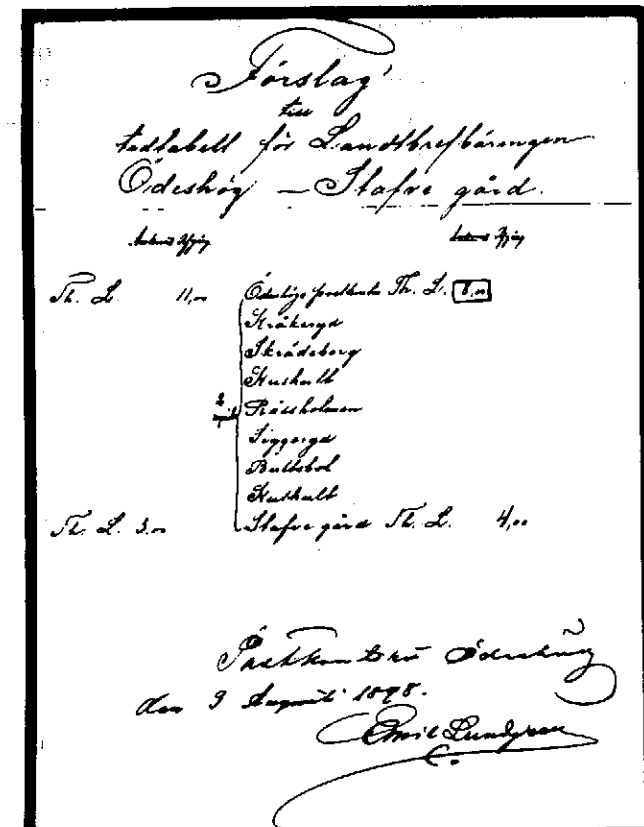 Förslag
till
tidtabell för Landtbrefbäringen
Ödeshög – Stafre gård.
Th. L. 11,00 Ödeshögs postkontor Th. L. 8,00
Kråkeryd
Skrädeberg
Kushult
Råssholmen
Siggeryd
Bultsbol
Kushult
Th. L. 3,00 Stafre gård Th. L. 4,00
Postkontoret Ödeshög
den 9 Augusti 1898.
Emil Lundgren